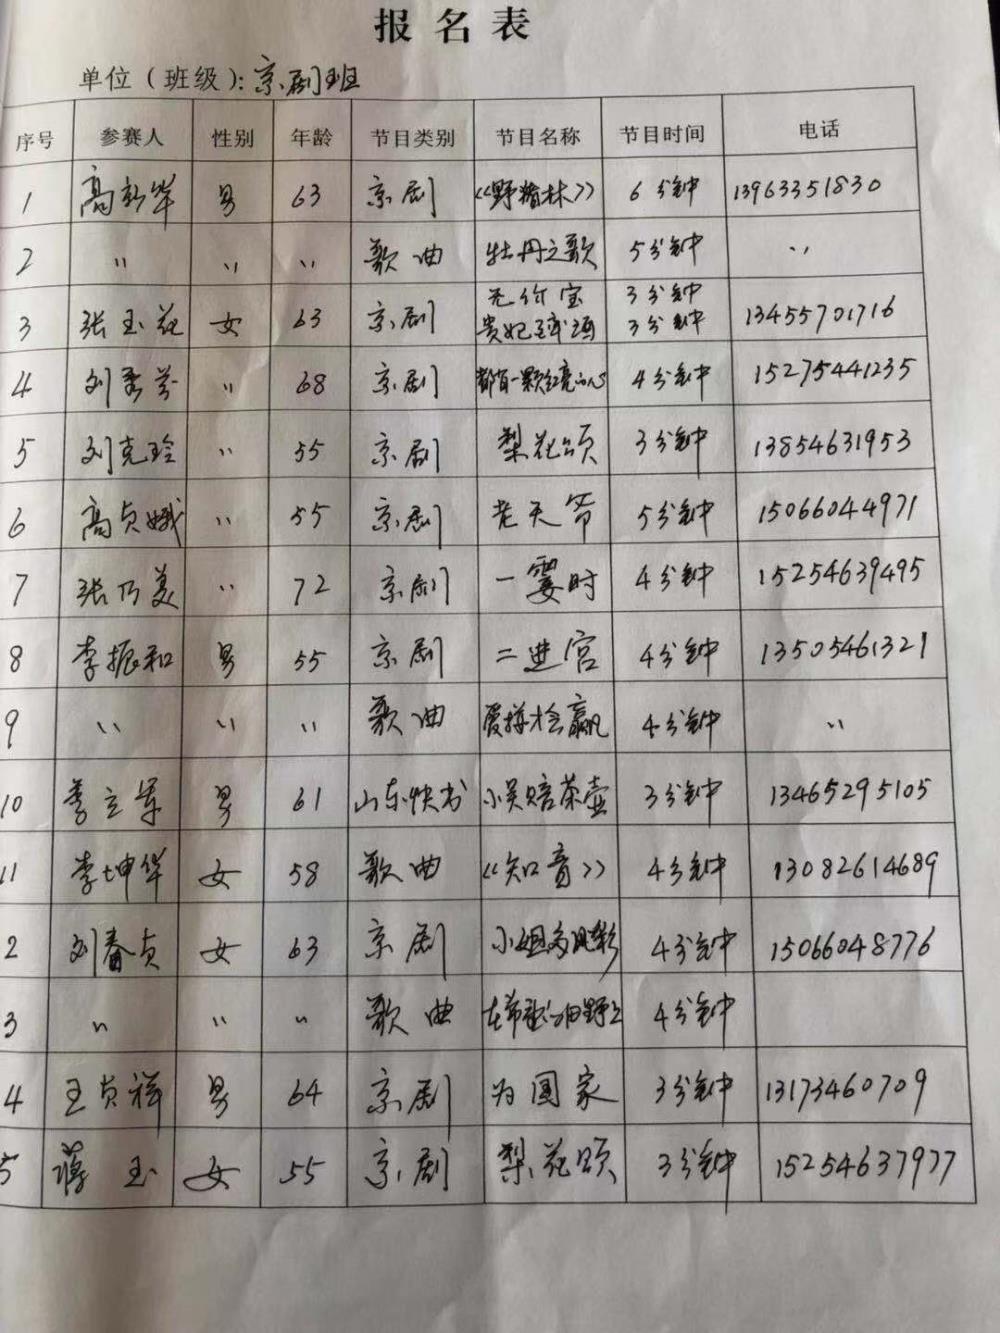 报名表
单位（班级）：京剧班
序号 参赛人 性别 年龄 节目类别 节目名称 节目时间 电话
1 高新华 男 63 京剧 《野猪林》 6分钟 13963351830
2 〃 〃 〃 歌曲 牡丹之歌 5分钟 〃
3 张玉花 女 63 京剧 无价宝 3分钟 13455701716
贵妃醉酒 3分钟
4 刘秀芬 〃 68 京剧 都有一颗红亮的心 4分钟 15275441235
5 刘克玲 〃 55 京剧 梨花颂 3分钟 13854631953
6 高贞娥 〃 55 京剧 老天爷 5分钟 15066044971
7 张乃美 〃 72 京剧 一霎时 4分钟 15254639495
8 李振和 男 55 京剧 二进宫 4分钟 13505461321
9 〃 〃 〃 歌曲 爱拼才会赢 4分钟 〃
10 李立军 男 61 山东快书 小吴赔茶壶 3分钟 13465295105
11 李坤华 女 58 歌曲 《知音》 4分钟 13082614689
2 刘春贞 女 63 京剧 小姐多风彩 4分钟 15066048776
3 〃 〃 〃 歌曲 在希望的田野上 4分钟
4 王贞祥 男 64 京剧 为国家 3分钟 13173460709
5 蒋玉 女 55 京剧 梨花颂 3分钟 15254637977